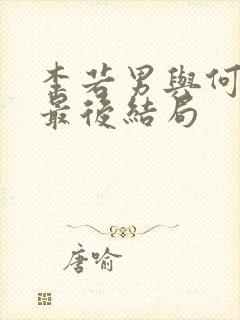 李若男與何
最後結局
唐喻